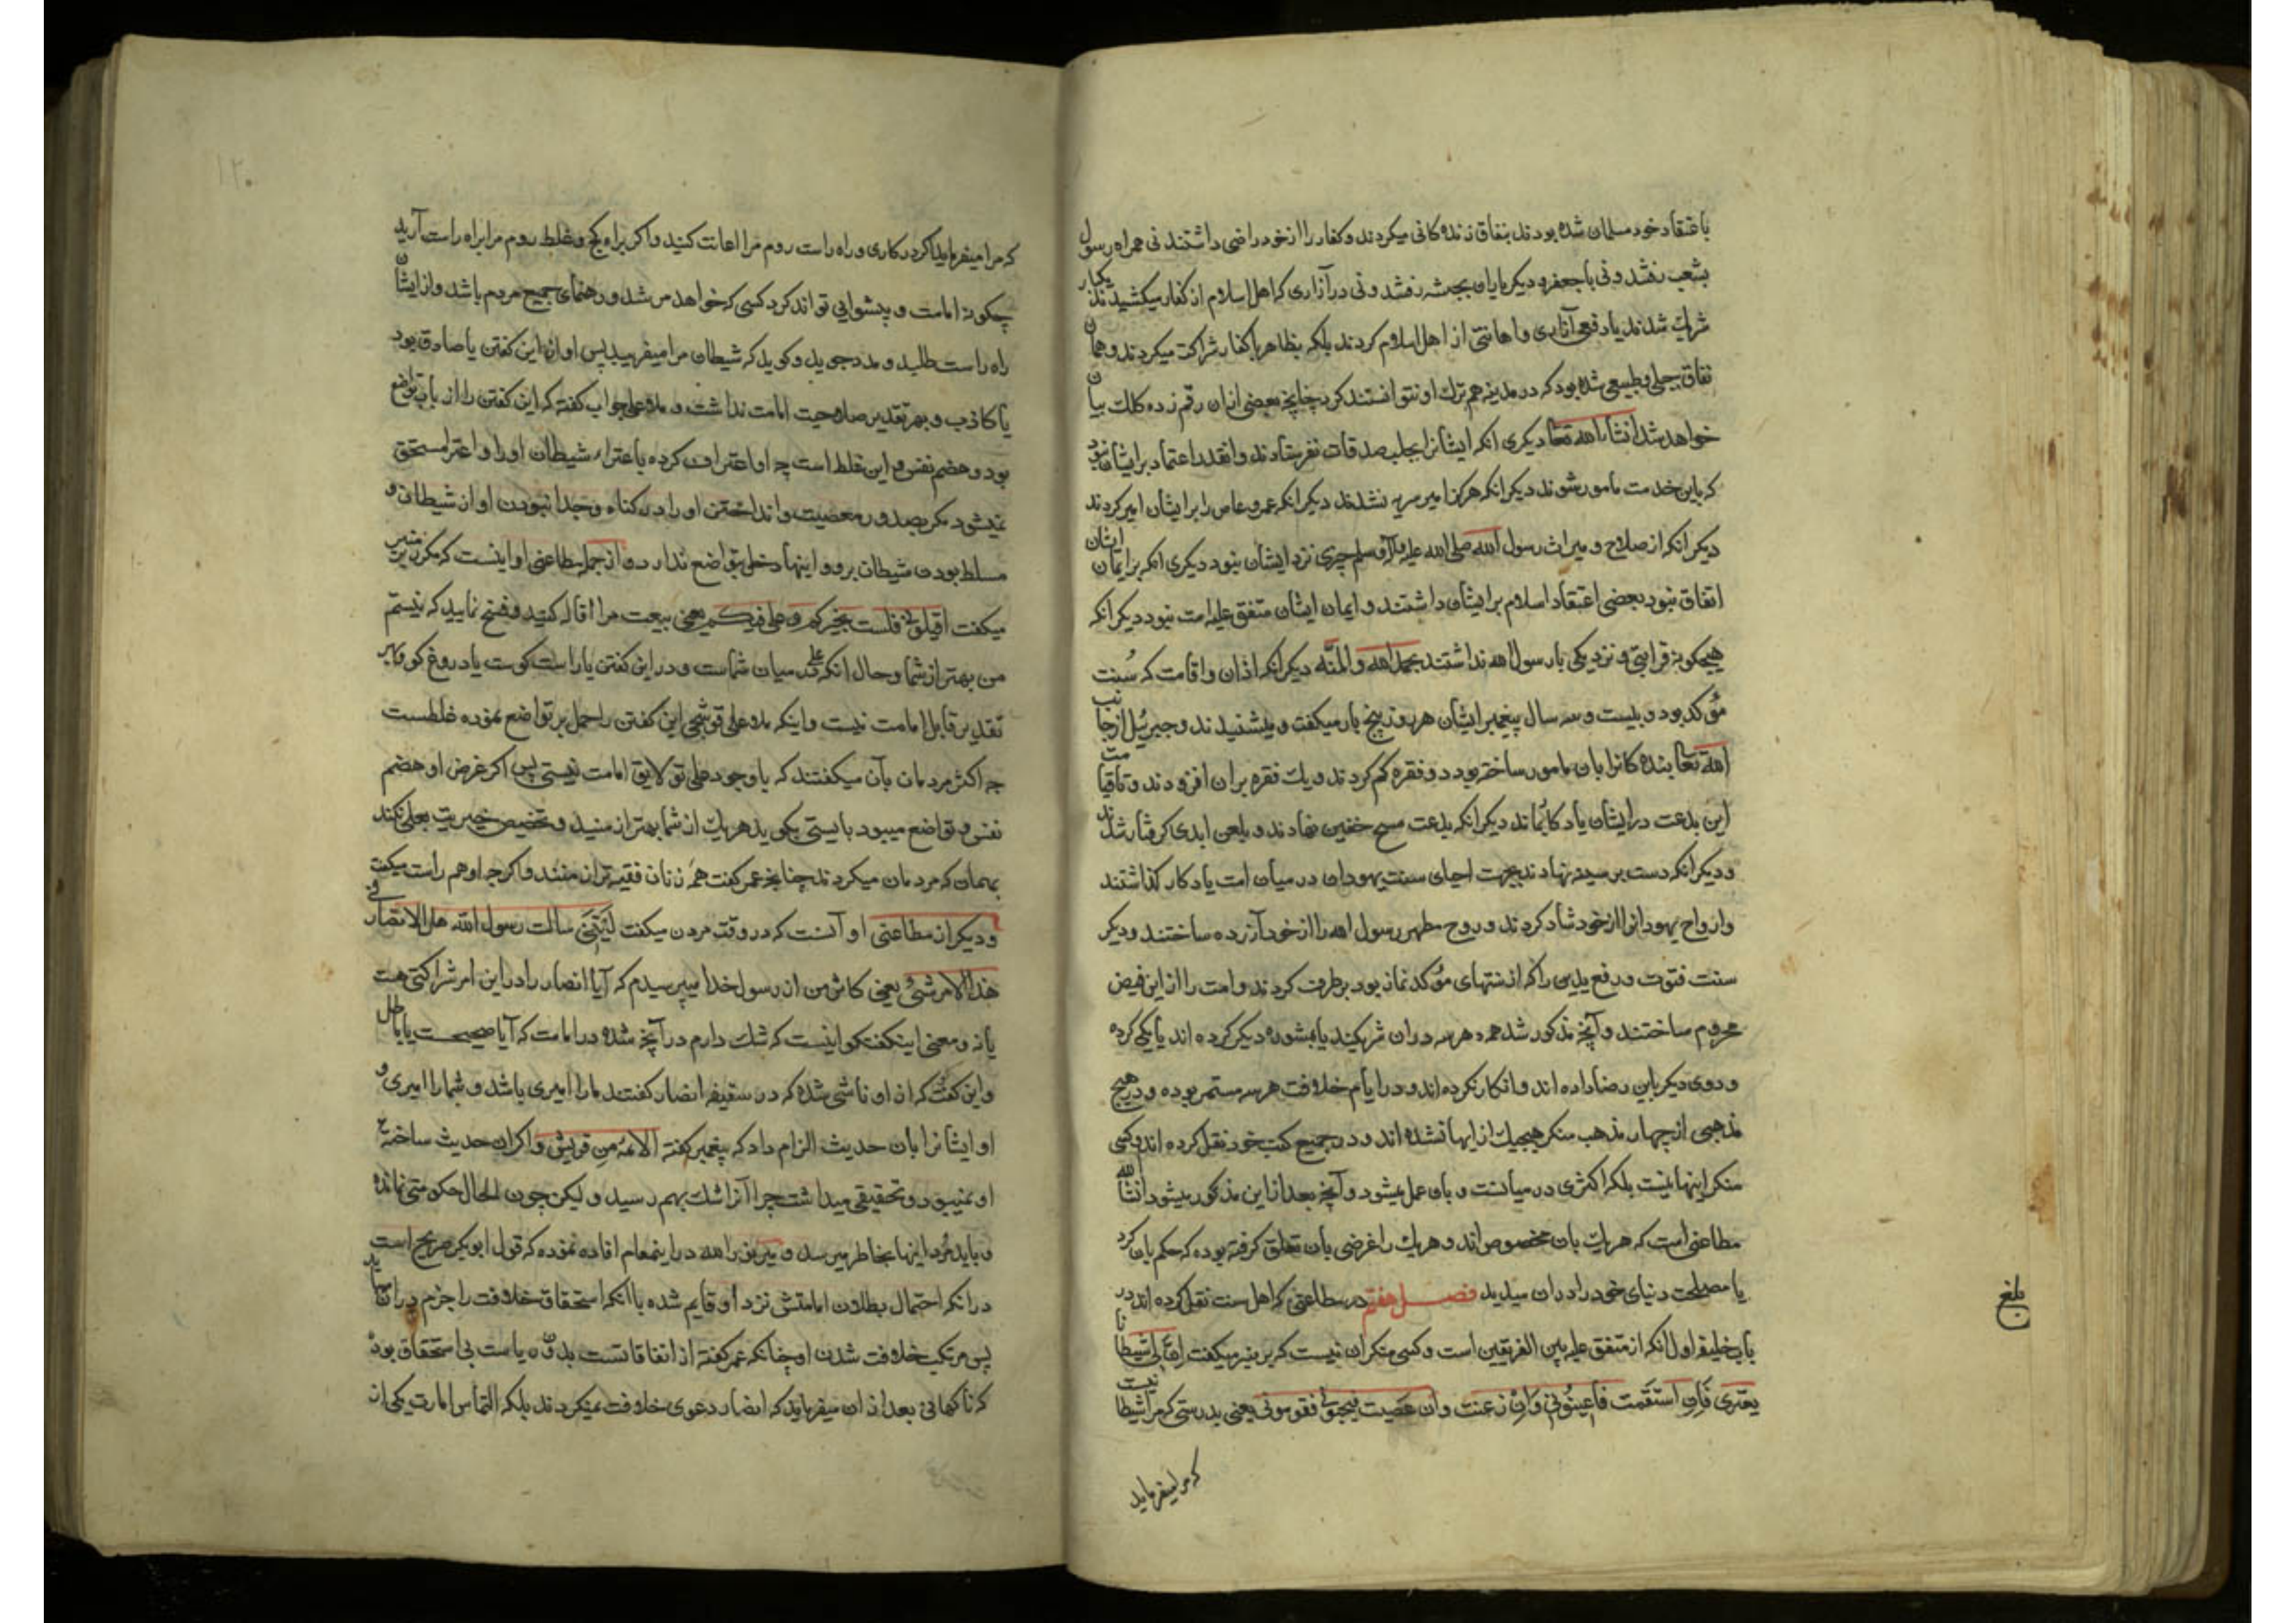 باعتقاد خود مسلمان شده بودند بنفاق زنده کانی میکردند و کفار را از خود راضی داشتند نی همراه رسول
بشعب رفتند و نی با جعفر و دیگر یاران بحبشه رفتند و نی در آزاری که اهل اسلام از کفار میکشیدند یکبار
شریک شدند یا دفع آزاری و اهانتی از اهل اسلام کردند بلکه بظاهر با کفار شراکت میکردند و همان
نفاق جبلی و طبیعی شده بود که در مدینه هم ترک او نتوانستند کرد چنانچه بعضی ازان رقم زده کلک بیان
خواهد شد انشاء الله تعالی دیگری انکه ایشانرا بجلب صدقات نفرستادند و انقدر اعتماد بر ایشان نبود
که باین خدمت مامور شوند دیگر انکه هرگز امیر سریه نشدند دیگر انکه عمرو عاص را بر ایشان امیر کردند
دیگر انکه از صلاح و میراث رسول الله صلی الله علیه وآله وسلم چیزی نزد ایشان نبود دیگری انکه بر ایمان ایشان
اتفاق نبود بعضی اعتقاد اسلام بر ایشان داشتند و ایمان ایشان متفق علیه امت نبود دیگر انکه
هیچکونه قرابتی و نزدیکی با رسول الله نداشتند بحمد الله والمنه دیگر انکه اذان و اقامت که سُنت
مؤکد بود و بیست و سه سال پیغمبر ایشان هر روز پنج بار میکفت و میشنیدند و جبرئیل از جانب
الله تعالی بنده کانرا بان مامور ساخته بود دو فقره کم کردند و یک فقره بران افزودند و تا قیامت
این بدعت در ایشان یادکار بماند دیگر انکه بدعت مسح خفین نهادند و بلعن ابدی کرفتار شدند
و دیگر انکه دست بر سینه نهادند بجهت احیای سنت یهودان در میان امت یادکار کذاشتند
و ارواح یهودانرا از خود شاد کردند و روح مطهر رسول الله را از خود آزرده ساختند و دیگر
سنت قنوت و رفع یدین را که از سنتهای مؤکد نماز بود برطرف کردند و امت را از این فیض
محروم ساختند و آنچه مذکور شد همه هر سه دران شریکند یا بمشوره دیگر کرده اند یا یکی کرده
و دوی دیگر باین رضا داده اند و انکار نکرده اند و در ایام خلافت هر سه مستمر بوده و در هیچ
مذهبی از چهار مذهب منکر هیچیک از اینها نشده اند و در جمیع کتب خود نقل کرده اند و کسی
منکر اینها نیست بلکه اکثری در میانست و بان عمل میشود و آنچه بعد از این مذکور میشود انشاالله
مطاعنی است که هر یک بان مخصوص اند و هر یک را غرضی بان تعلق کرفته بوده که حکم بان کرد
یا مصلحت دنیای خود را دران میدید فصل هفتم در مطاعنی که اهل سنت نقل کرده اند در
باب خلیفه اول انکه از متفق علیه بین الفریقین است و کسی منکر ان نیست که بر منبر میکفت ان لی شیطانا
یعتری فَاِن استَقَمت فاعینُونی وَاِن زغت وان عصیت فجنبونی فقومونی یعنی بدرستی که مرا شیطانیست
که مرا میفرماید
بلغ
۱۲۰
که مرا میفرماید اکر در کاری و راه راست روم مرا اعانت کنید و اکر براه کج و غلط روم مرا براه راست آرید
چکونه امامت و پیشوایی تواند کرد کسی که خواهد مرشد و رهنمای جمیع مردم باشد و از ایشان
راه راست طلبد و مدد جوید و کوید که شیطان مرا میفریبد پس او از این کفتن یا صادق بود
یا کاذب و بهر تقدیر صلاحیت امامت نداشت و ملا علی جواب کفته که این کفتن را از باب تواضع
بود و هضم نفس و این غلط است چه او اعتراف کرده باعتراء شیطان او را و اعترا مستحق
نمیشود مکر بصدور معصیت و انداختن او را در کناه و جدا نبودن او از شیطان و
مسلط بودن شیطان برو و اینها دخلی بتواضع ندارد و از جمله مطاعنی او اینست که مکرر بر منبر
میکفت اقیلونی فلست بخیرکم وعلی فیکم یعنی بیعت مرا اقاله کنید و فسخ نمایید که نیستم
من بهتر از شما و حال انکه علی در میان شماست و در این کفتن یا راست کوست یا دروغ کو و بهر
تقدیر قابل امامت نیست و اینکه ملا علی قوشجی این کفتن را حمل بر تواضع نموده غلطست
چه اکثر مردمان بآن میکفتند که با وجود علی تو لایق امامت نیستی پس اکر غرض او هضم
نفس و تواضع میبود بایستی بکوید هر یک از شما بهتر از منید و تخصیص خیریت بعلی نکند
بهمان که مردمان میکردند چنانچه عمر کفت همه زنان فقیه تر از منند و اکرچه او هم راست میکفت
و دیکر از مطاعنی او آنست که در وقت مردن میکفت لَیتَنی سالت رسول الله هل الانصار فی
هذا الامر شئ یعنی کاش من از رسول خدا میپرسیدم که آیا انصار را در این امر شراکتی هست
یا نه و معنی این کفتکو اینست که شک دارم در آنچه شده در امامت که آیا صحیحست یا باطل
و این کفت که از او ناشی شده که در سقیفه انصار کفتند ما را امیری باشد و شما را امیری و
او ایشانرا بان حدیث الزام داد که پیغمبر کفته الائمه من قریش و اکر ان حدیث ساخته
او نمیبود و تحقیقی میداشت چرا آنرا شک بهم رسید و لیکن چون الحال حکومتی نمانده
و باید مُرد اینها بخاطر میرسد و میرین راهه در اینمقام افاده نموده که قول ابوبکر صریح است
در انکه احتمال بطلان امامتش نزد او قایم شده با انکه استحقاق خلافت را جزم دران نباید
پس مرتکب خلافت شدن او چنانکه عمر کفته از اتفاقاتست بد و ریاست بی استحقاق بوده
که ناکهانی بعد ازان میفرماید که انصار دعوی خلافت نمیکردند بلکه التماس امارت یکی از